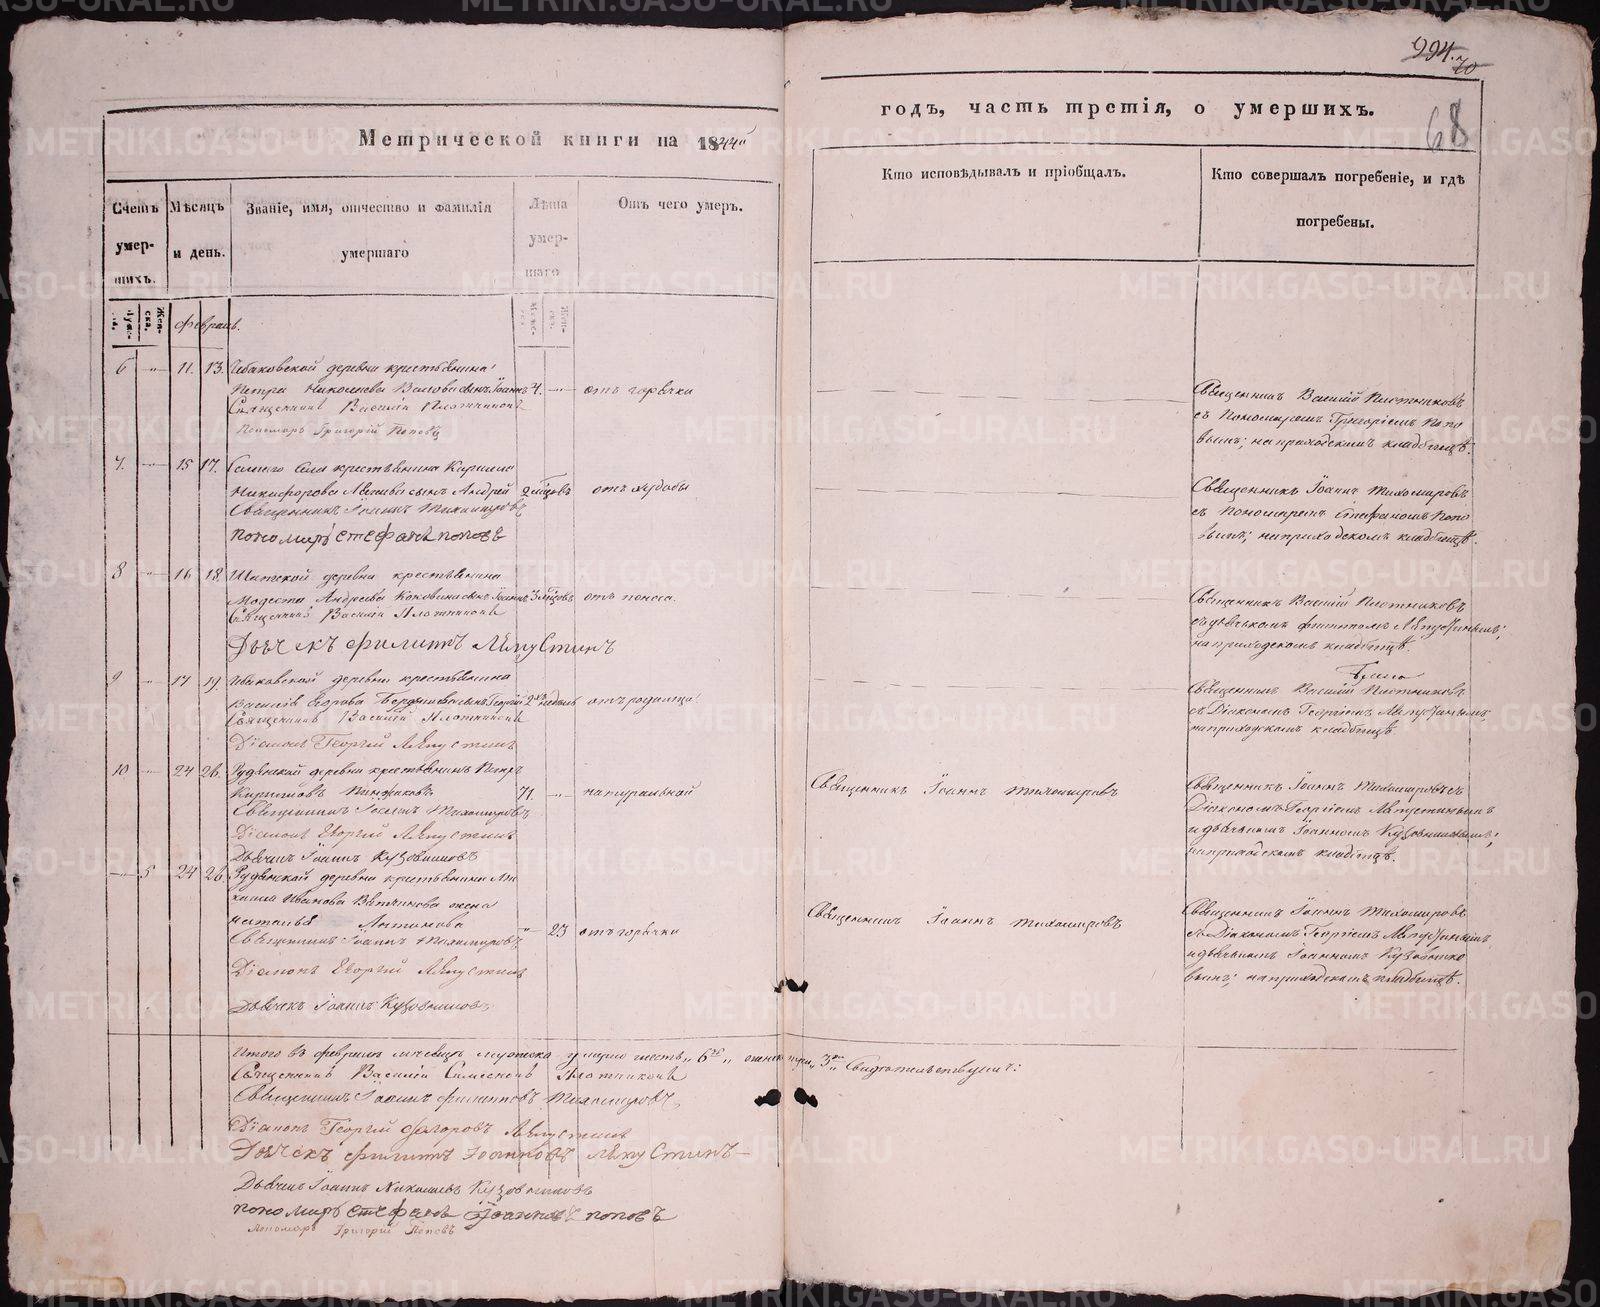 994.
70
68
Метрической книги на 1844й
годъ, часть третія, о умершихъ.
Счетъ умер-шихъ.
Мѣсяцъ и день.
Званіе, имя, отчество и фамилія умершаго
Лѣта умер-шаго
Отъ чего умеръ.
Кто исповѣдывалъ и пріобщалъ.
Кто совершалъ погребеніе, и гдѣ погребены.
февраль.
6 11. 13. деревни крестьянина
Петра Николаева сынъ Іоаннъ 4. отъ горячки
Священникъ Василій Плотниковъ
Пономарь Григорій Поповъ
Священникъ Василій Плотниковъ
съ Пономаремъ Григоріемъ Попо
вымъ; на приходскомъ кладбищѣ.
7. 15 17. Села крестьянина Кирилла
Никифорова сынъ Андрей 2 мѣсяцовъ отъ худобы
Священникъ Іоаннъ Тихомировъ
пономарь стефанъ поповъ
Священникъ Іоаннъ Тихомировъ
съ Пономаремъ Стефаномъ Попо
вымъ; на приходскомъ кладбищѣ.
8 16 18. деревни крестьянина
Модеста Андреева Коковина сынъ Іоаннъ 3 мѣсяцовъ отъ поноса.
Священникъ Василій Плотниковъ
Дьячекъ филипъ Ляпустинъ
Священникъ Василій Плотниковъ
съ дьячькомъ филиппомъ Ляпустинымъ;
на приходскомъ кладбищѣ.
9 17 19. деревни крестьянина
Василія Егорова сынъ Георгій 2хъ недѣль отъ родимца
Священникъ Василій Плотниковъ
Діаконъ Георгій Ляпустинъ
Священникъ Василій Плотниковъ
съ Діакономъ Георгіемъ Ляпустинымъ;
на приходскомъ кладбищѣ.
10 24 26. Рудянской деревни крестьянинъ Петръ
Кириловъ 71. натуральной
Священникъ Іоаннъ Тихомировъ
Діаконъ Егоргий Ляпустинъ
Дьячекъ Іоаннъ Кузовниковъ
Священникъ Іоаннъ Тихомировъ
Священникъ Іоаннъ Тихомировъ съ
Діакономъ Георгіемъ Ляпустинымъ
и дьячькомъ Іоанномъ Кузовниковымъ;
на приходскомъ кладбищѣ.
5 24 26 Рудянской деревни крестьянина
Иванова жена
Наталья Антонова 23 отъ горячки
Священникъ Іоаннъ Тихомировъ
Діаконъ Егоргий Ляпустинъ
Дьячекъ Іоаннъ Кузовниковъ
Священникъ Іоаннъ Тихомировъ
Священникъ Іоаннъ Тихомировъ
съ Діакономъ Георгіемъ Ляпустинымъ
и дьячькомъ Іоанномъ Кузовнико
вымъ; на приходскомъ кладбищѣ.
Итого въ февралѣ мѣсяцѣ мужеска умерло шесть „6ть„ женска три „3ри„ Свидѣтельствуемъ:
Священникъ Василій Симеоновъ Плотниковъ
Священникъ Іоаннъ филипповъ Тихомировъ
Діаконъ Георгій Ляпустинъ
Дьячекъ филипъ Іоанновъ Ляпустинъ
Дьячекъ Іоаннъ Николаевъ Кузовниковъ
пономарь стефанъ Іоанновъ поповъ
Пономарь Григорій Поповъ